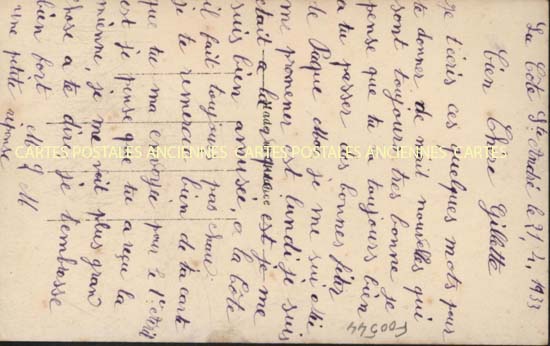 La Côte St André le 21, 4, 1933
Bien Chère Gillette
Je t'écris ces quelques mots pour
te donner de mai nouvelles qui
sont toujours très bonne je
pense que tu va toujours bien
a tu passer des bonnes fêtes
de Paque Moi je me sui
me promener et lundi je suis
était a la
est je me
suis bien amusée, a la Côte
il fait toujours pas chau
je te remercie bien de ta carte
que tu ma envoyé pour le 1er avril
est je pense que tu a reçu la
mienne, je me voit plus gran
chose a te dire je t'embrasse
bien fort M
une petite réponse
CARTES POSTALES ANCIENNES CARTES POSTALES ANCIENNES CARTES POSTALES ANCIENNES
F00544